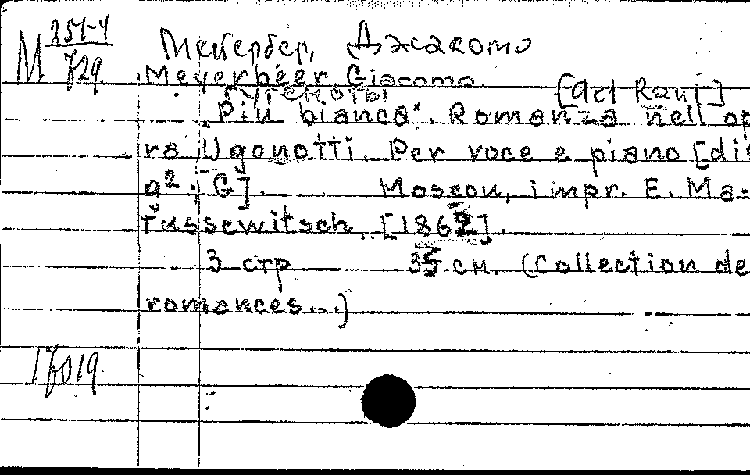 М 251-4
729
Мейербер, Джакомо
Meyerbeer Giacomo.
Гугеноты [act Raul]
"Più bianca". Romanza nell'op
ra Ugonotti. Per voce e piano [dis
a²; G]. Moscou, impr. E. Ma-
tussewitsch. [1862].
3 стр 35 см. (Collection de
romances...)